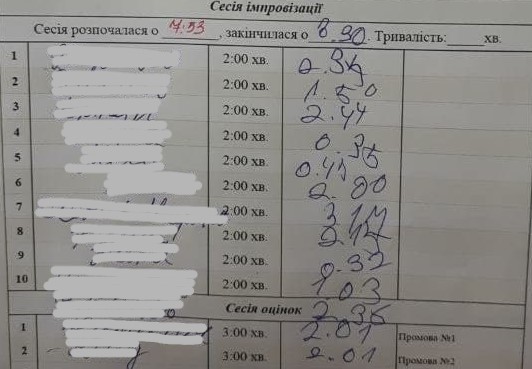 Сесія імпровізації
Сесія розпочалася о 7:53, закінчилася о 8.30. Тривалість:______хв.
1 2:00 хв. 2.35
2 2:00 хв. 1.50
3 2:00 хв. 2.44
4 2:00 хв. 0.35
5 2:00 хв. 0.45
6 2:00 хв. 2.00
7 2:00 хв.
8 2:00 хв.
9 2:00 хв. 0.32
10 2:00 хв. 1 03
Сесія оцінок 2.36
1 3:00 хв. 2.01 Промова №1
2 3:00 хв. 2.01 Промова №2